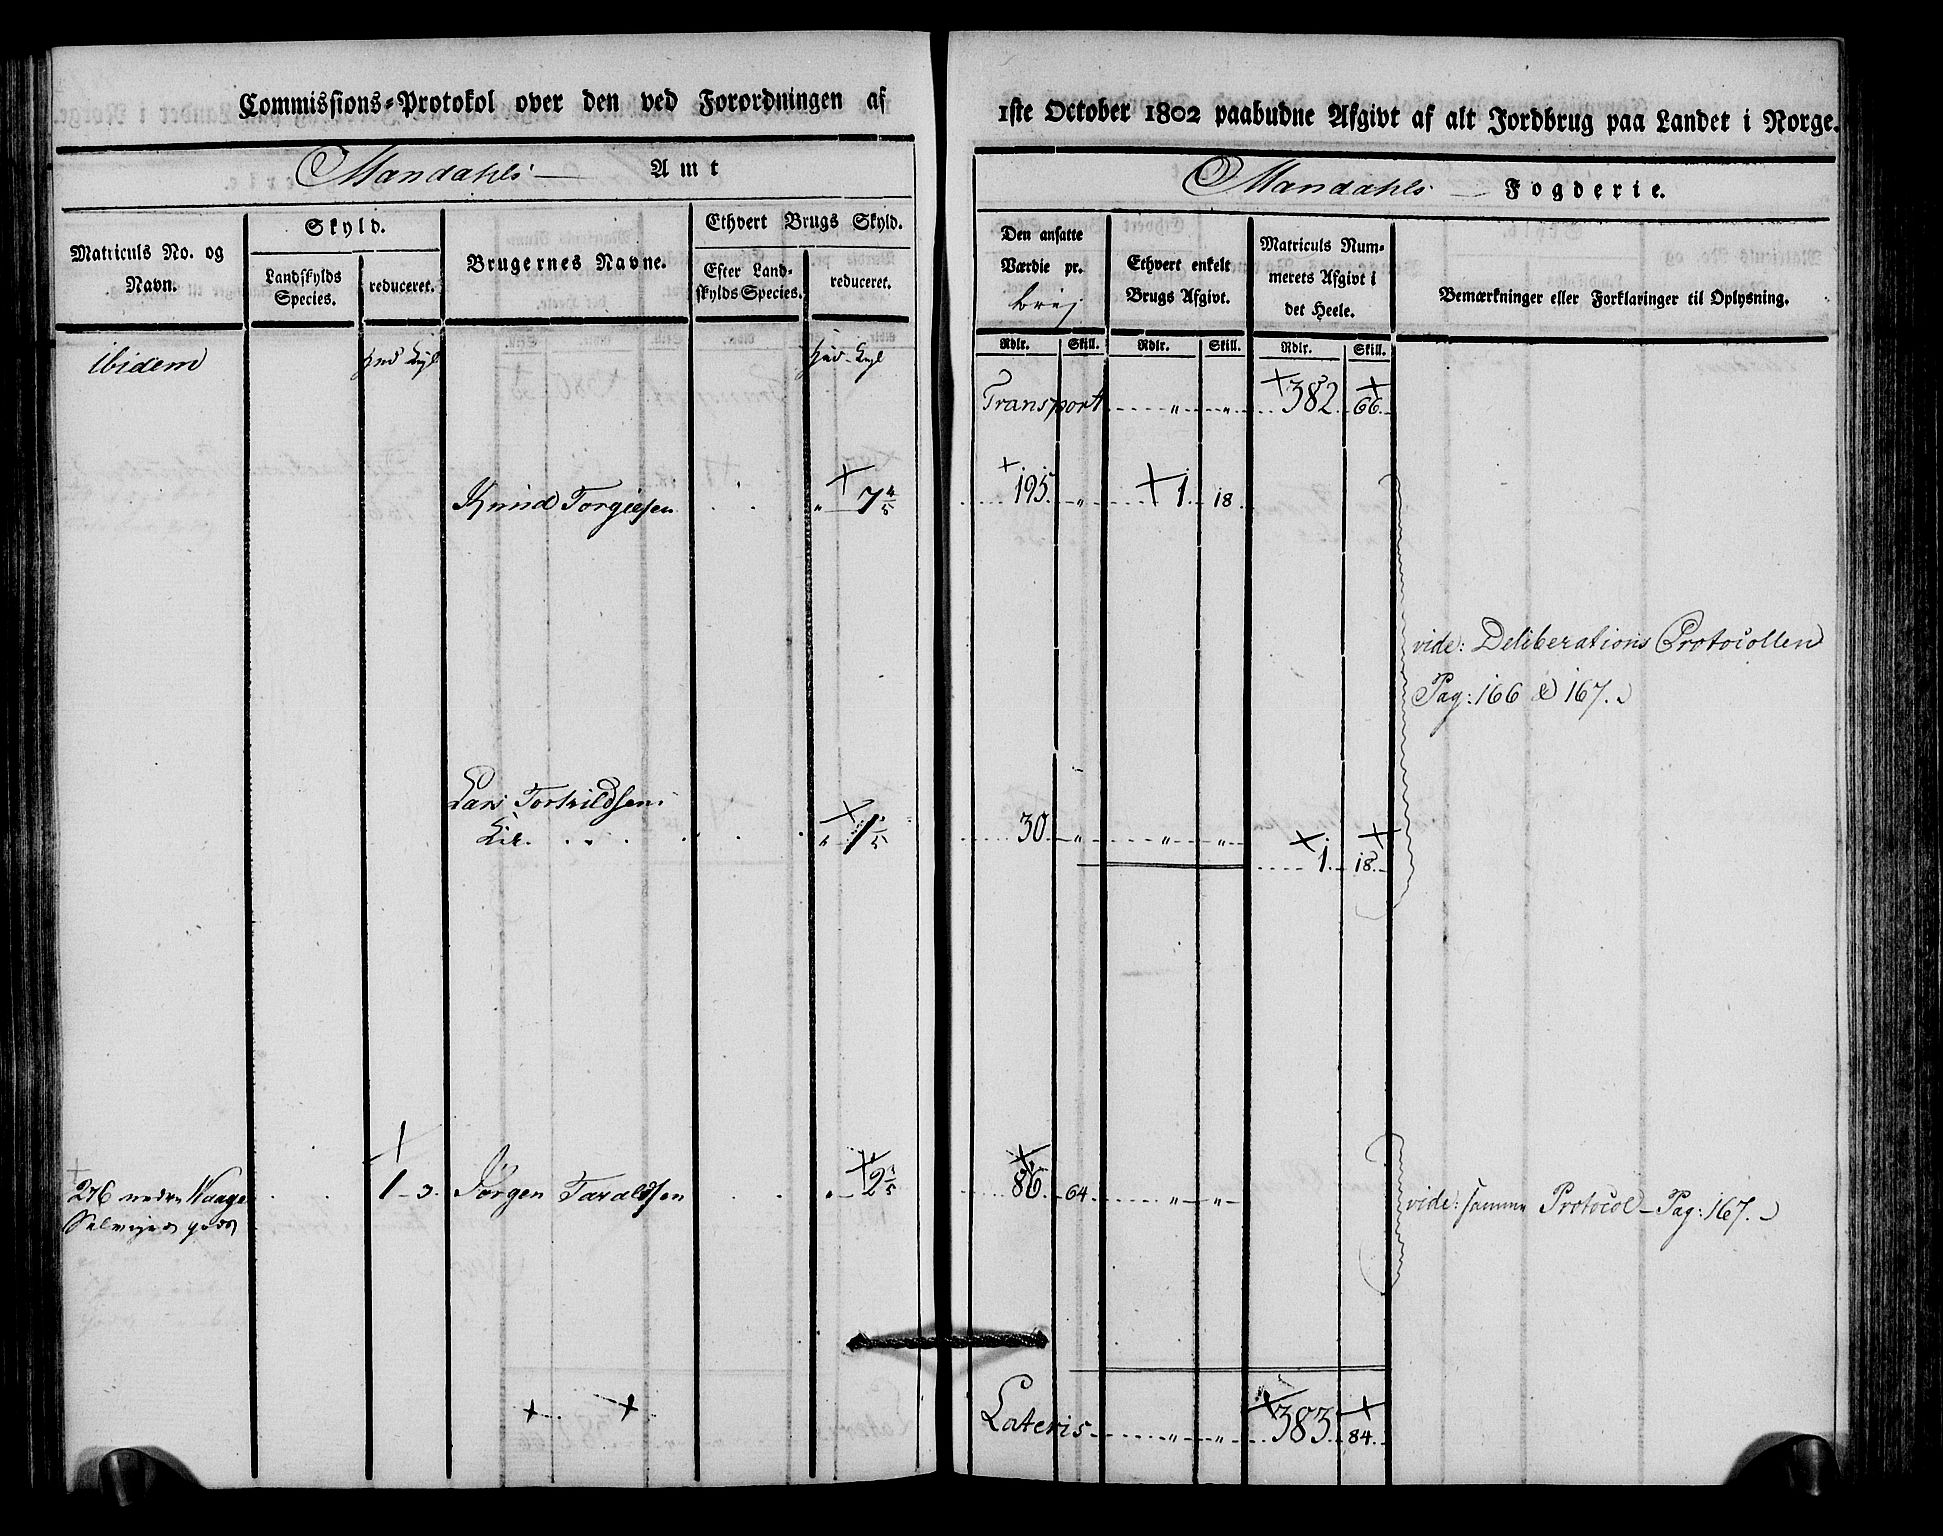 Commissions-Protokol over den ved Forordningen af
Mandahls Amt
Matriculs No. og Navn.
Skyld.
Landskylds Species.
reduceret.
Brugernes Navne.
Ethvert Brugs Skyld.
Efter Landskylds Species.
reduceret.
ibidem
Knud Torgiesen " 7 4/5
Lars Torkildsen
" 1 1/5
276 nedre Waage 1 - 3. Jörgen Taraldsen " 2 2/5
1ste October 1802 paabudne Afgivt af alt Jordbrug paa Landet i Norge.
Mandahls Fogderie.
Den ansatte Værdie pr.
Ethvert enkelt Brugs Afgivt.
Matriculs Nummerets Afgivt i det Heele.
Bemærkninger eller Forklaringer til Oplysning.
Rdlr. Skill. Rdlr. Skill. Rdlr. Skill.
Transport " " 382. 66.
195. " 1. 18.
vide: Deliberations Protocollen
Pag: 166 & 167.
30. " " "
1. 18.
86. 64. " " vide: samme Protocol - Pag: 167.
Lateris " " 383. 84.